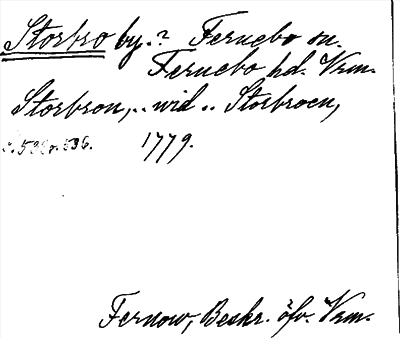 Storbro by.? Fernebo sn.
Fernebo hd. Vrm.
Storbron,.. wid .. Storbroen,
s. 535 o. 536. 1779.
Fernow, Beskr. öfv. Vrm.